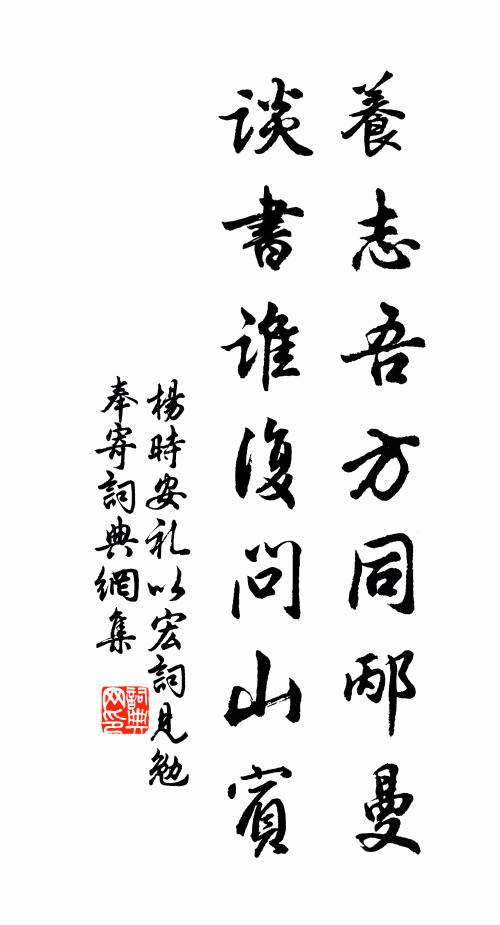 養志吾方同邴曼
談書誰復問山賓
楊時安礼以宏詞見勉
奉寄詞典網集
詞典
网印